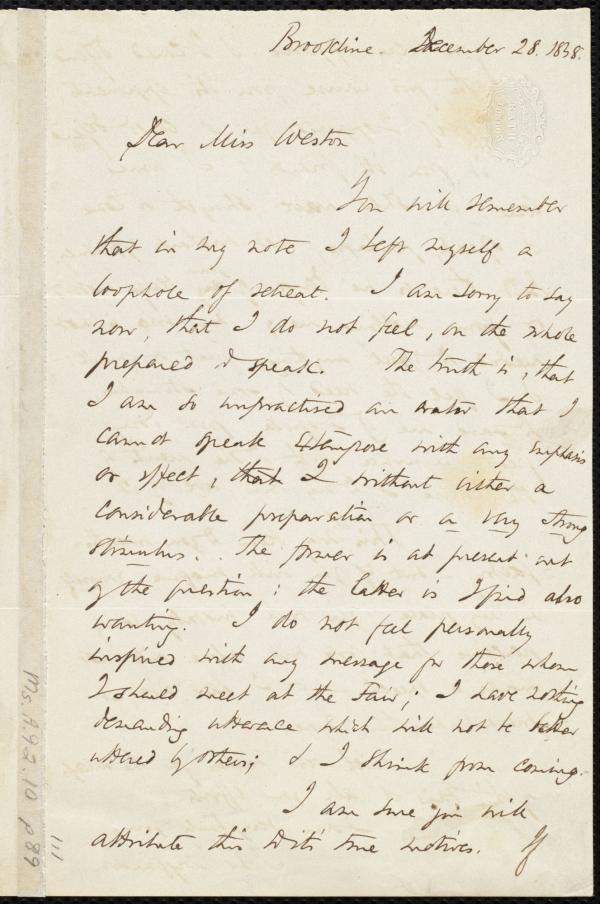 Brookline. December 28. 1838.
Dear Miss Weston
You will remember
that in my note I left myself a
loophole of retreat. I am sorry to say
now, that I do not feel, on the whole
prepared to speak. The truth is, that
I am so unpractised an orator that I
cannot speak extempore with any emphasis
or effect, without either a
considerable preparation or a very strong
stimulus. The former is at present out
of the question; the latter is I find also
wanting. I do not feel personally
inspired with any message for those whom
I should meet at the Fair; I have nothing
demanding utterance which will not be better
uttered by others; & I shrink from coming.
I am sure you will
attribute this to its true motives. If
Ms. A.9.2.10 p 89
111